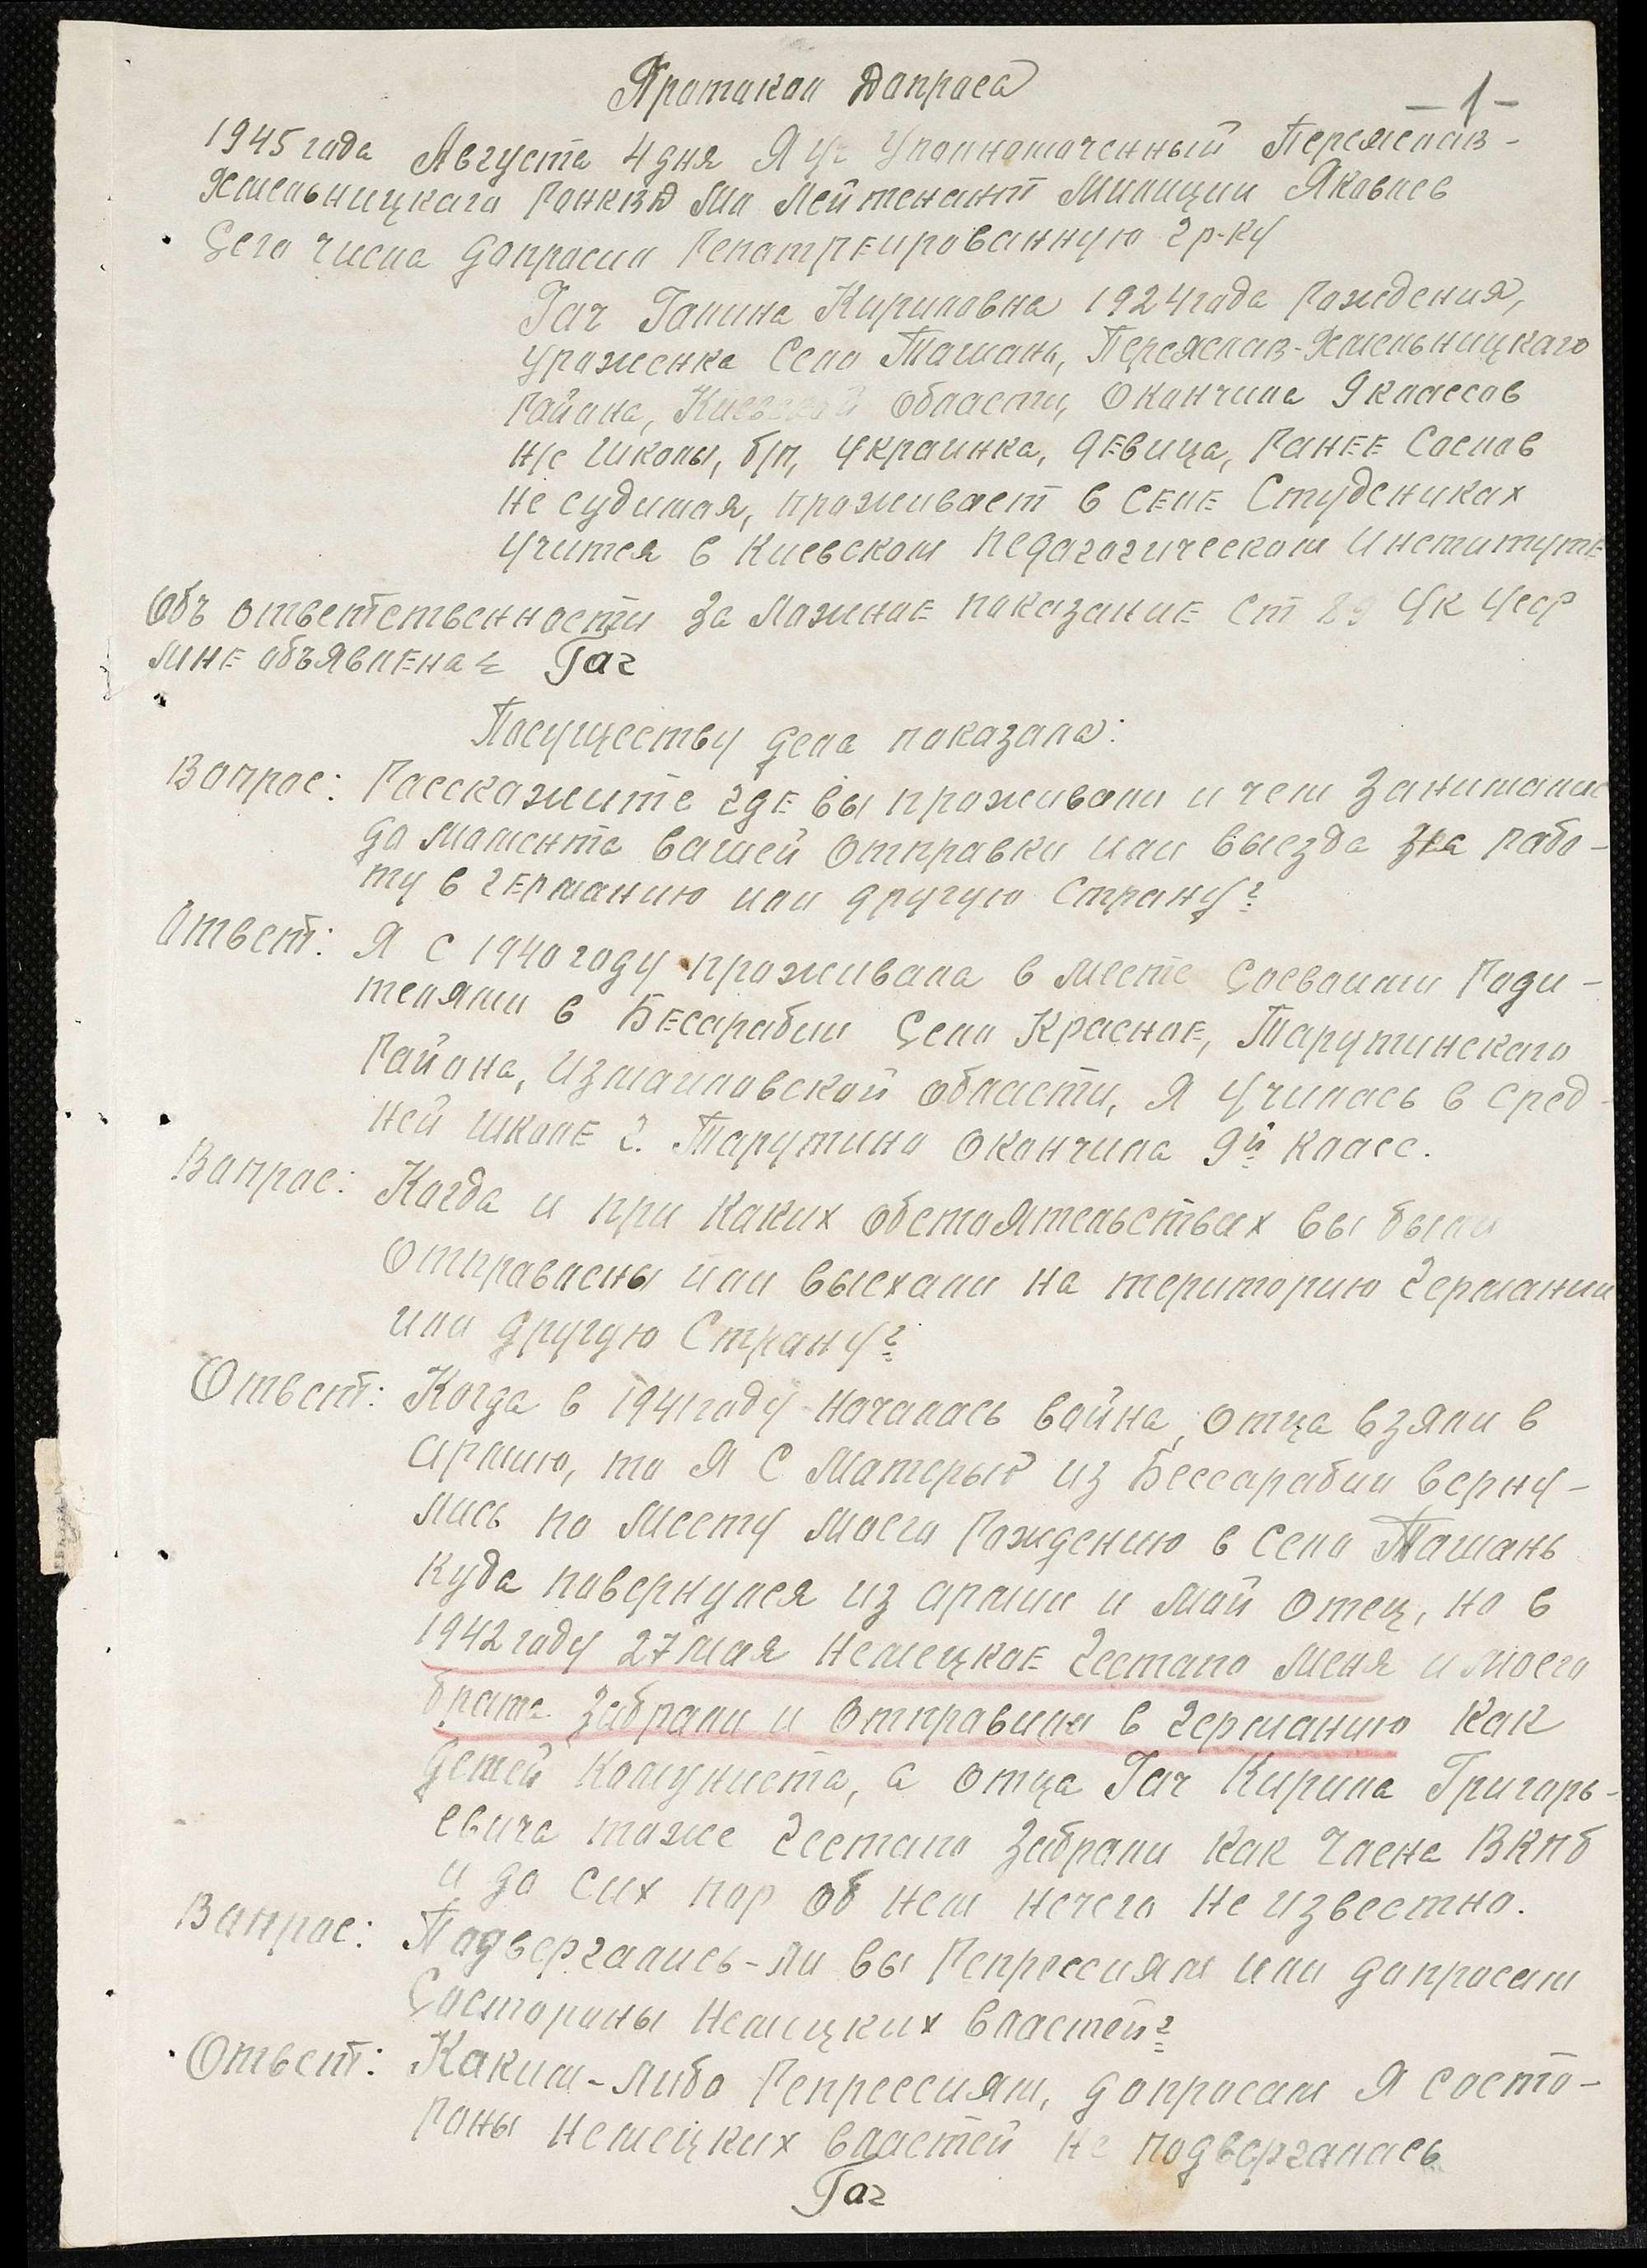 Протокол Допроса
– 1 –
1945 года Августа 4 дня Я уч Уполномоченный Переяслав-
Хмельницкаго РОНКВД Мл Лейтенант Милиции Яковлев
Сего числа допросил Репатреированную гр-ку
Гач Галина Кириловна 1924 года рождения,
уроженка Село Ташань, Переяслав-Хмельницкаго
района, Киевской области, окончила 9 классов
н/с школы, б/п, украинка, девица, ранее Со слов
не судимая, проживает в селе Студениках
учится в Киевском педагогическом институте
Объ ответственности за ложное показание Ст 89 УК УССР
мне объявлена Гач
Посуществу дела показала:
Вопрос: Расскажите где вы проживали и чем занимались
до момента вашей отправки или выезда на рабо-
ту в германию или другую Страну?
Ответ: Я с 1940 году проживала в месте Сосвоими Роди-
телями в Бесарабии Село Красное, Тарутинскаго
Района, Измаиловской области, Я Училась в сред-
ней школе г. Тарутино окончила 9й класс.
Вопрос: Когда и при каких обстоятельствах вы были
отправлены или выехали на територию германии
или другую Страну?
Ответ: Когда в 1941 году началась война, отца взяли в
армию, то Я С Матерью из Бессарабии верну-
лись по месту моего Рождению в село Ташань
куда повернулся из армии и мой отец, но в
1942 году 27 мая немецкое гестапо меня и моего
брата забрали и отправили в германию как
детей комуниста, а отца Гач Кирила Григорь-
евича тоже гестапо забрали как члена ВКПб
и до сих пор об нем нечего не известно.
Вопрос: Подвергались-ли вы Репрессиям или допросам
Состороны немецких властей?
Ответ: Каким-либо Репрессиям, допросам Я состо-
роны немецких властей не подвергалась
Гач